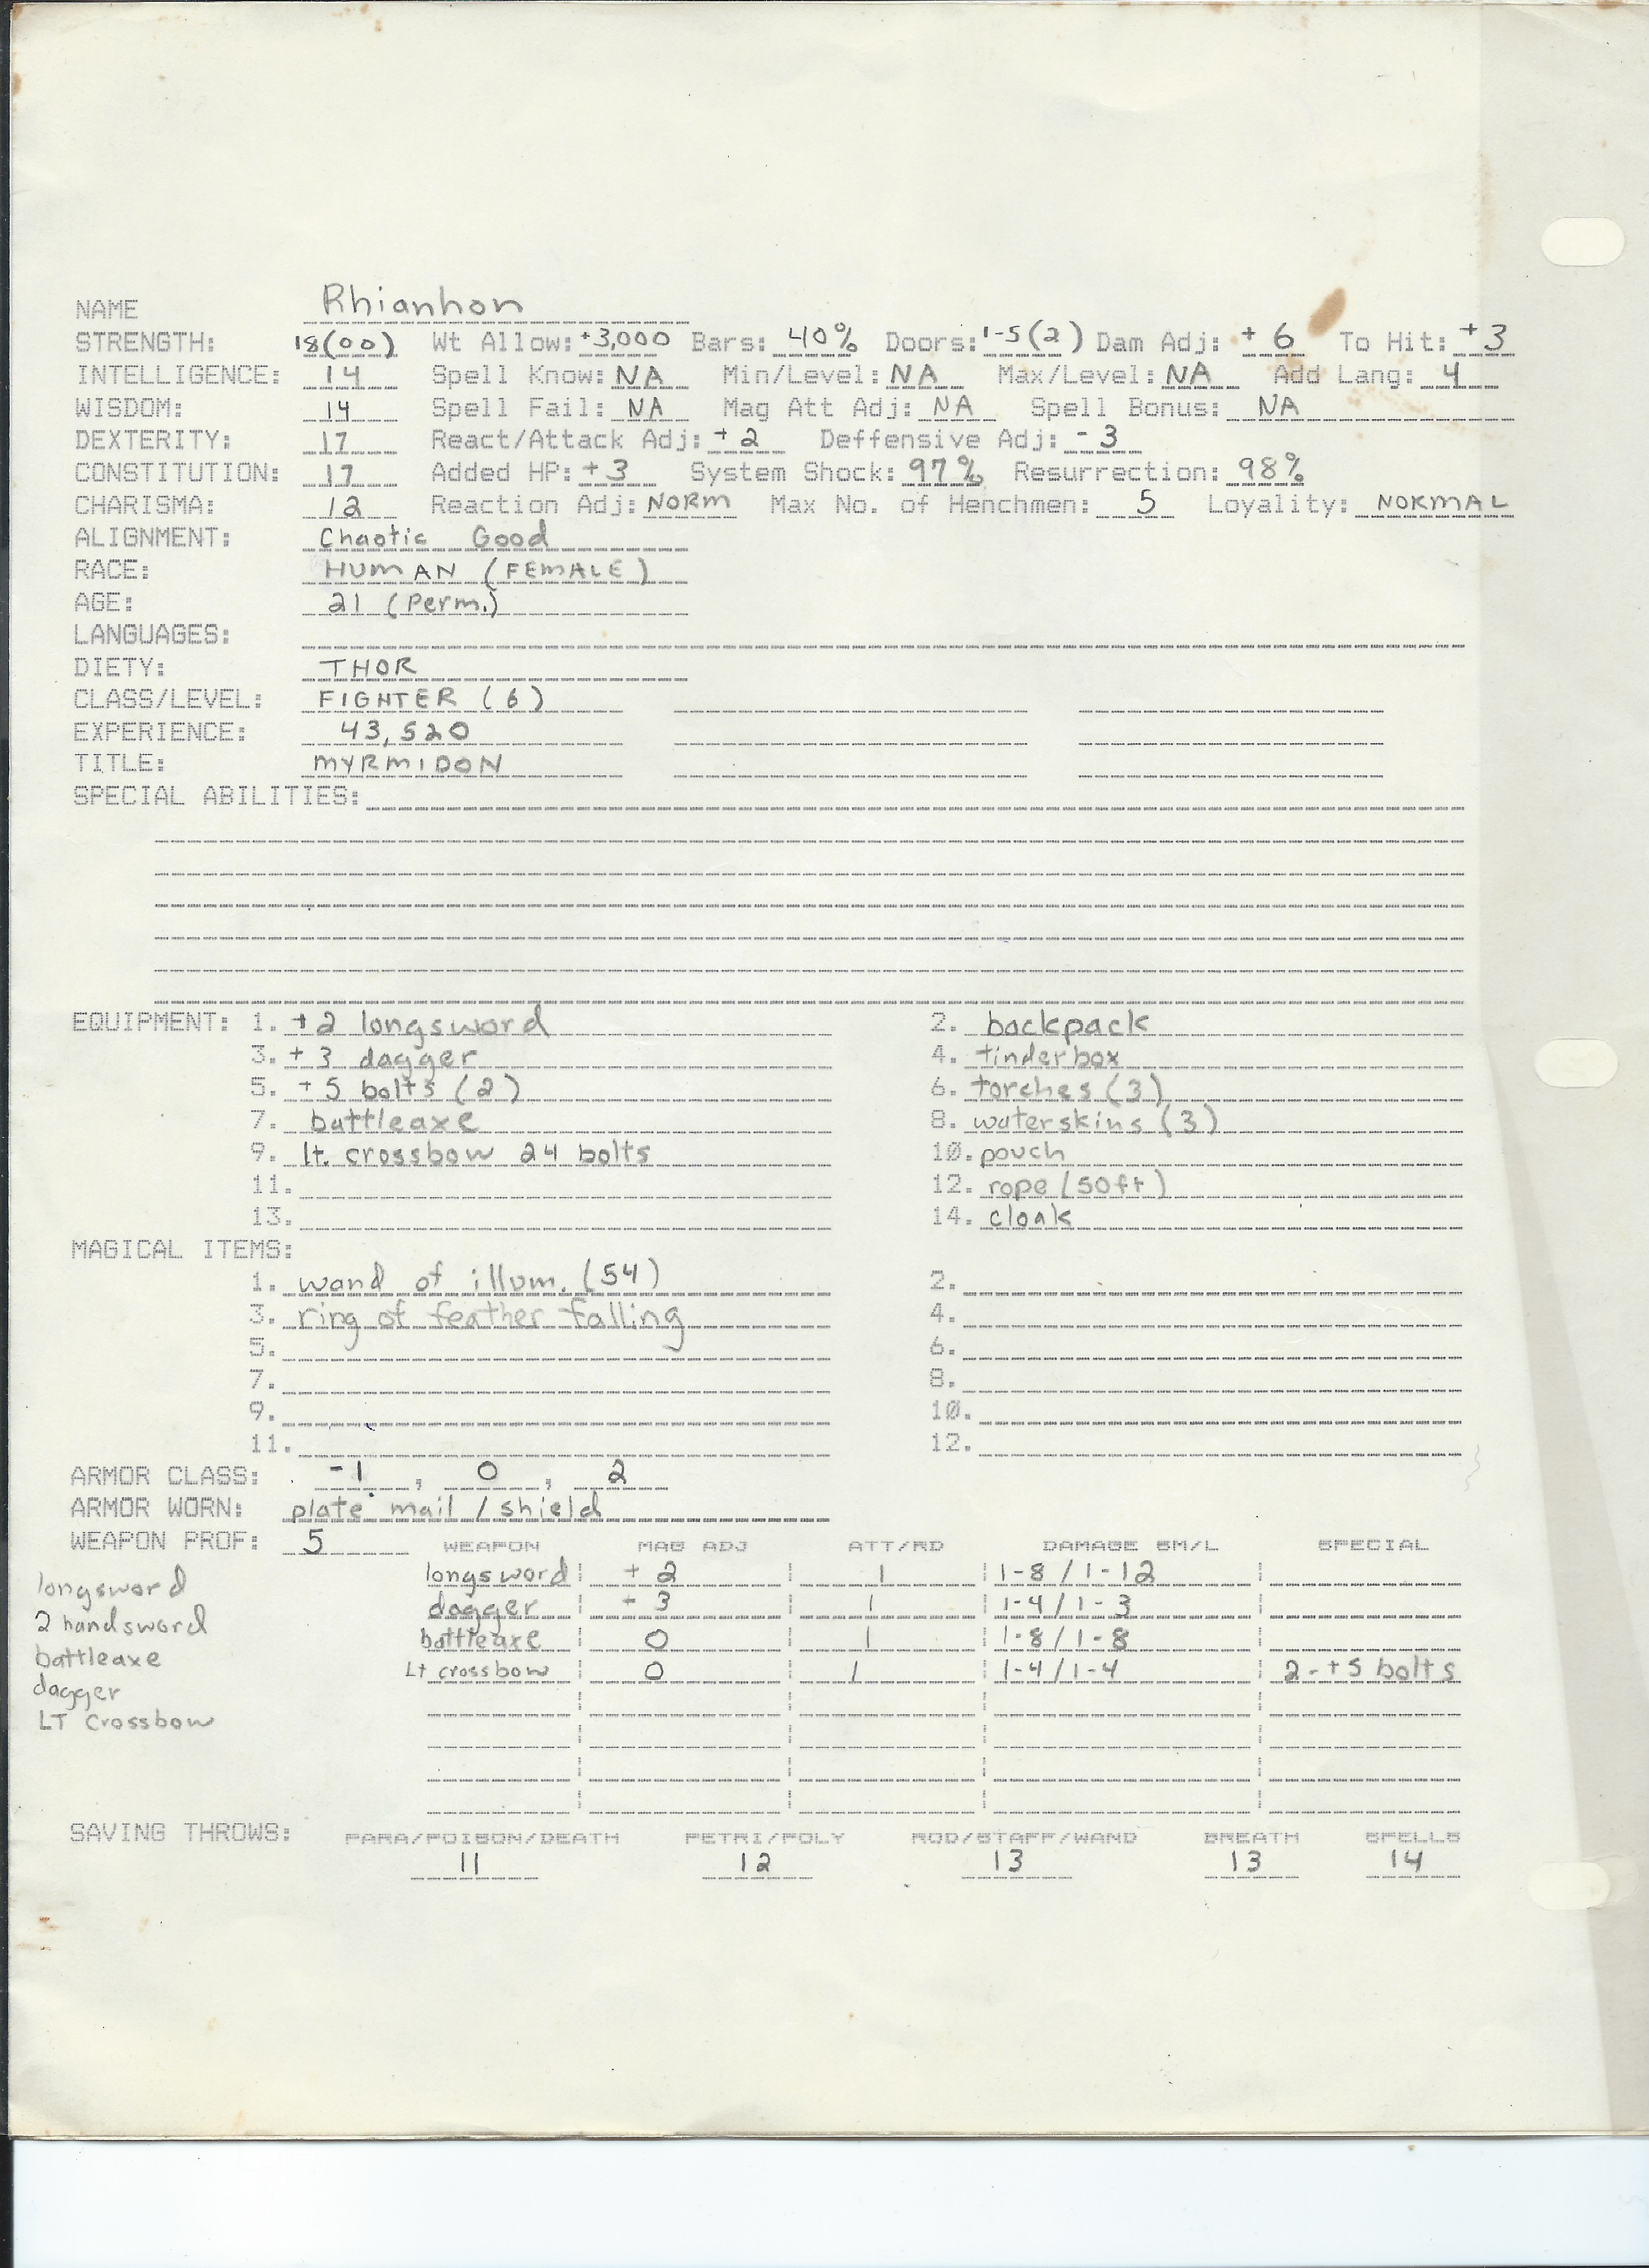 NAME Rhianhon
STRENGTH: 18(00) Wt Allow: +3,000 Bars: 40% Doors: 1-5(2) Dam Adj: +6 To Hit: +3
INTELLIGENCE: 14 Spell Know: NA Min/Level: NA Max/Level: NA Add Lang: 4
WISDOM: 14 Spell Fail: NA Mag Att Adj: NA Spell Bonus: NA
DEXTERITY: 17 React/Attack Adj: +2 Deffensive Adj: -3
CONSTITUTION: 17 Added HP: +3 System Shock: 97% Resurrection: 98%
CHARISMA: 12 Reaction Adj: NORM Max No. of Henchmen: 5 Loyality: NORMAL
ALIGNMENT: Chaotic Good
RACE: HUMAN (FEMALE)
AGE: 21 (Perm.)
LANGUAGES:
DIETY: THOR
CLASS/LEVEL: FIGHTER (6)
EXPERIENCE: 43,520
TITLE: MYRMIDON
SPECIAL ABILITIES:
EQUIPMENT: 1. +2 longsword 2. backpack
3. +3 dagger 4. tinderbox
5. +5 bolts (2) 6. torches (3)
7. battleaxe 8. waterskins (3)
9. lt. crossbow 24 bolts 10. pouch
11. 12. rope (50ft)
13. 14. cloak
MAGICAL ITEMS:
1. wand of illum. (54) 2.
3. ring of feather falling 4.
5. 6.
7. 8.
9. 10.
11. 12.
ARMOR CLASS: -1, 0, 2
ARMOR WORN: plate mail / shield
WEAPON PROF: 5 WEAPON MAG ADJ ATT/RD DAMAGE SM/L SPECIAL
longsword longsword +2 1 1-8 / 1-12
2 handsword dagger - 3 1 1-4 / 1-3
battleaxe battleaxe 0 1 1-8 / 1-8
dagger Lt crossbow 0 1 1-4 / 1-4 2-+5 bolts
LT Crossbow
SAVING THROWS: PARA/POISON/DEATH PETRI/POLY ROD/STAFF/WAND BREATH SPELLS
11 12 13 13 14